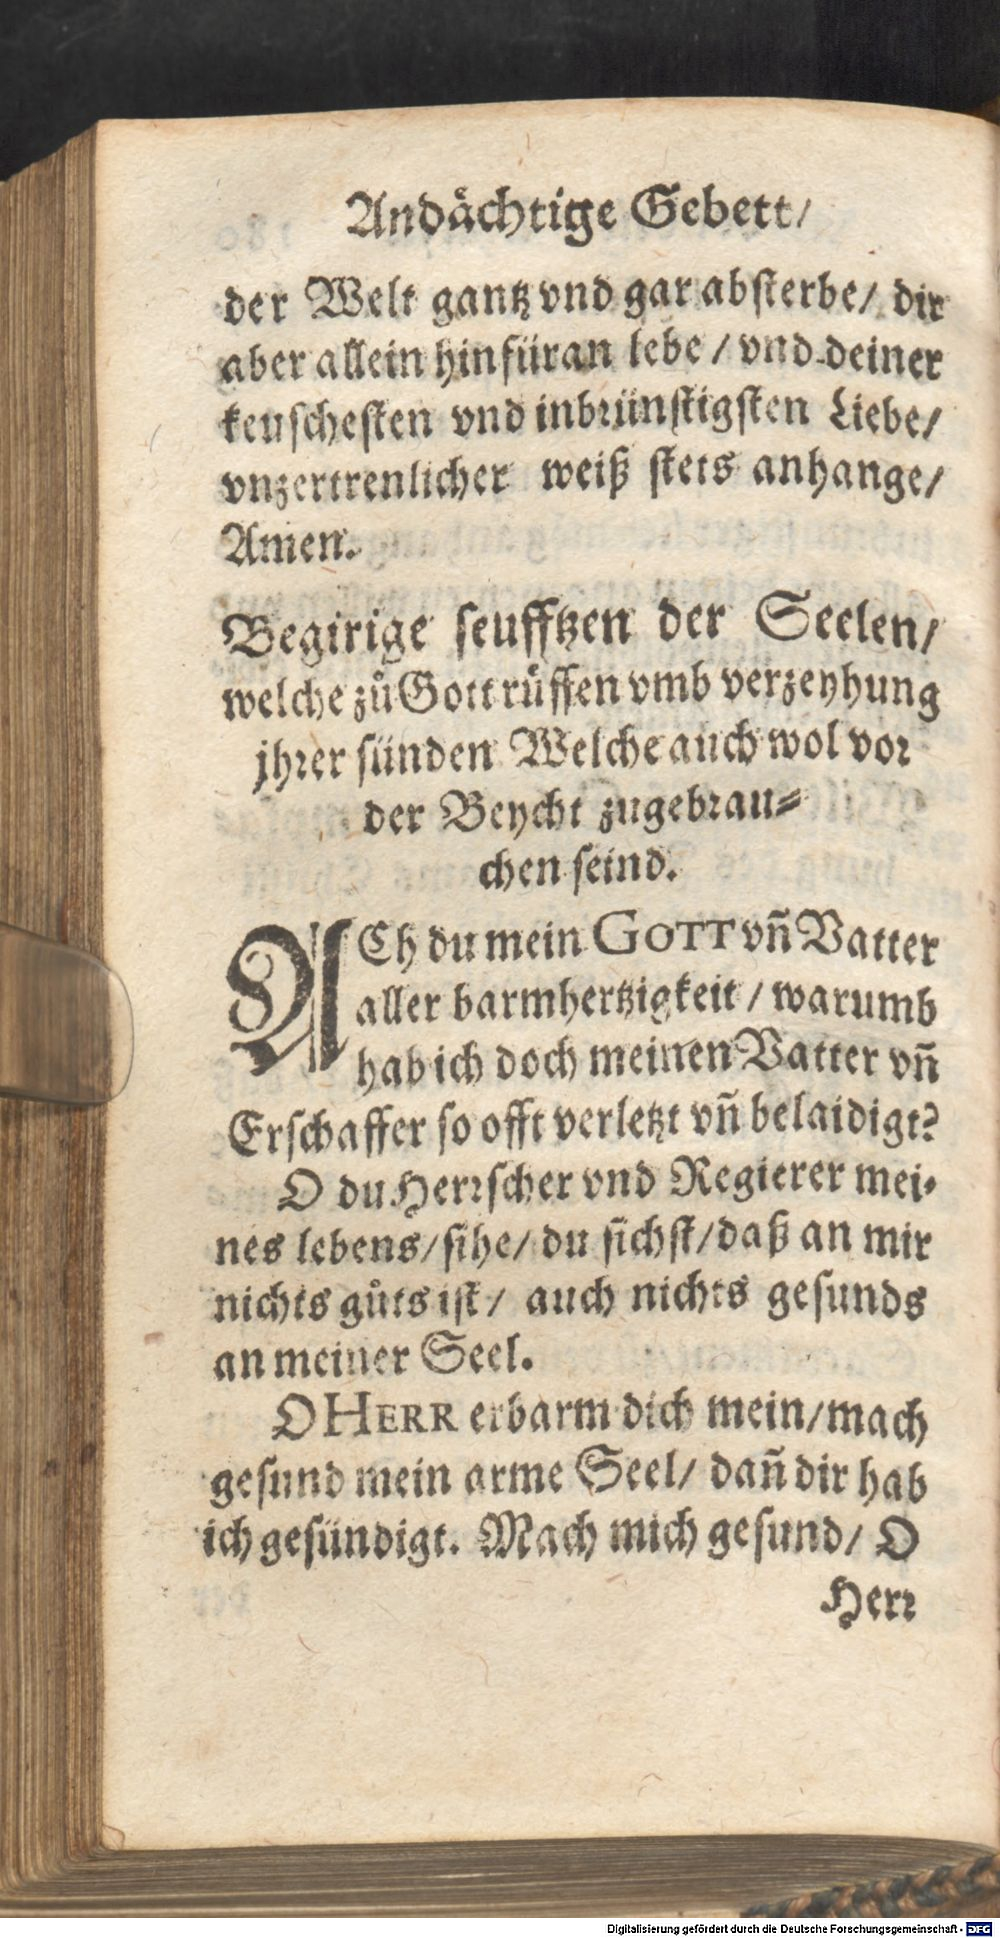 Andaͤchtige Gebett/
der Welt gantz vnd gar absterbe/ dir
aber allein hinfüran lebe / vnd deiner
keuschesten vnd inbrünstigsten Liebe/
vnzertrenlicher weiß stets anhange/
Amen.
Begirige seufftzen der Seelen/
welche zuͦ Gott ruͤffen vmb verzeyhung
jhrer sünden Welche auch wol vor
der Beycht zugebrau⸗
chen seind.
ACh du mein GOTT vñ Vatter
aller barmhertzigkeit / warumb
hab ich doch meinen Vatter vñ
Erschaffer so offt verletzt vñ belaidigt?
O du Herrscher vnd Regierer mei⸗
nes lebens/sihe/ du sichst/daß an mir
nichts guͦts ist/ auch nichts gesunds
an meiner Seel.
O HERR erbarm dich mein/mach
gesund mein arme Seel/ dañ dir hab
ich gesündigt. Mach mich gesund/ O
Herr
Digitalisierung gefördert durch die Deutsche Forschungsgemeinschaft - DFG